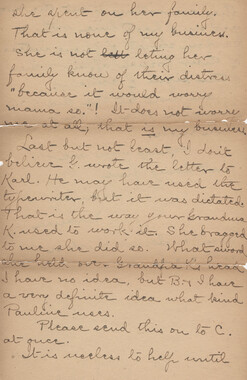 she spent on her family.
That is none of my business.
She is not leting her
family know of their distress
"because it would worry
mama so."! It does not worry
me at all, that is my business
Last but not least, I don't
believe G. wrote the letter to
Karl. He may have used the
typewriter, but it was dictated.
That is the way your Grandma
K. used to work it. She bragged
to me she did so. What sword
she held over Grandpa K's head
I have no idea, but By I have
a very definite idea what kind
Pauline uses.
Please send this on to C.
at once.
It is useless to help until